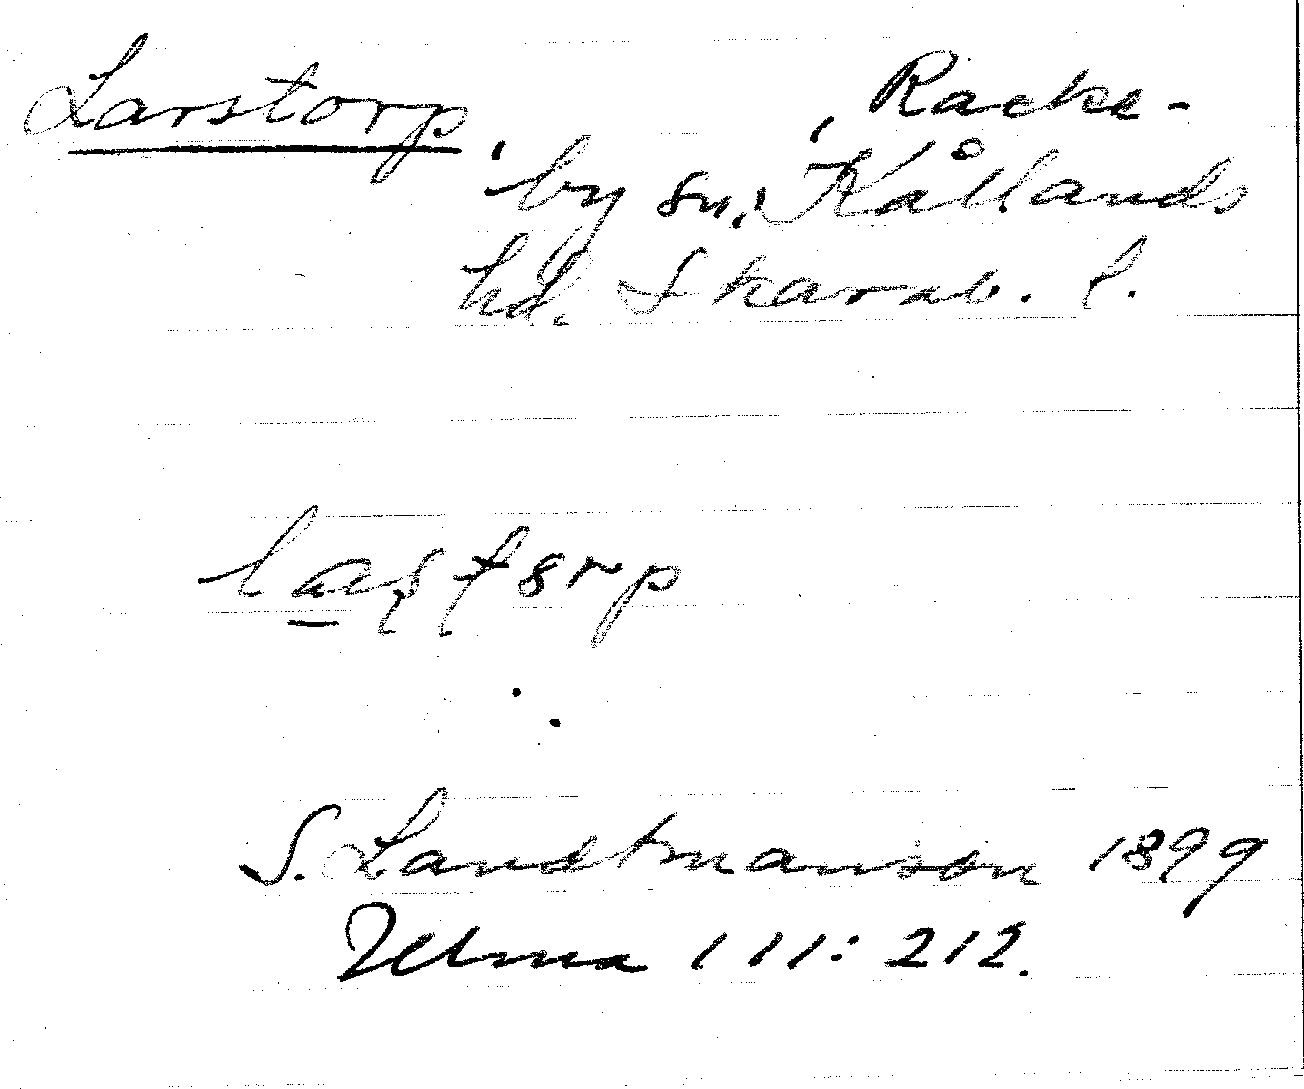 Larstorp, , Racke-
by sn, Kållands
hd. Skarab. l.
S. Landtmanson 1899
Ulma 111: 212.